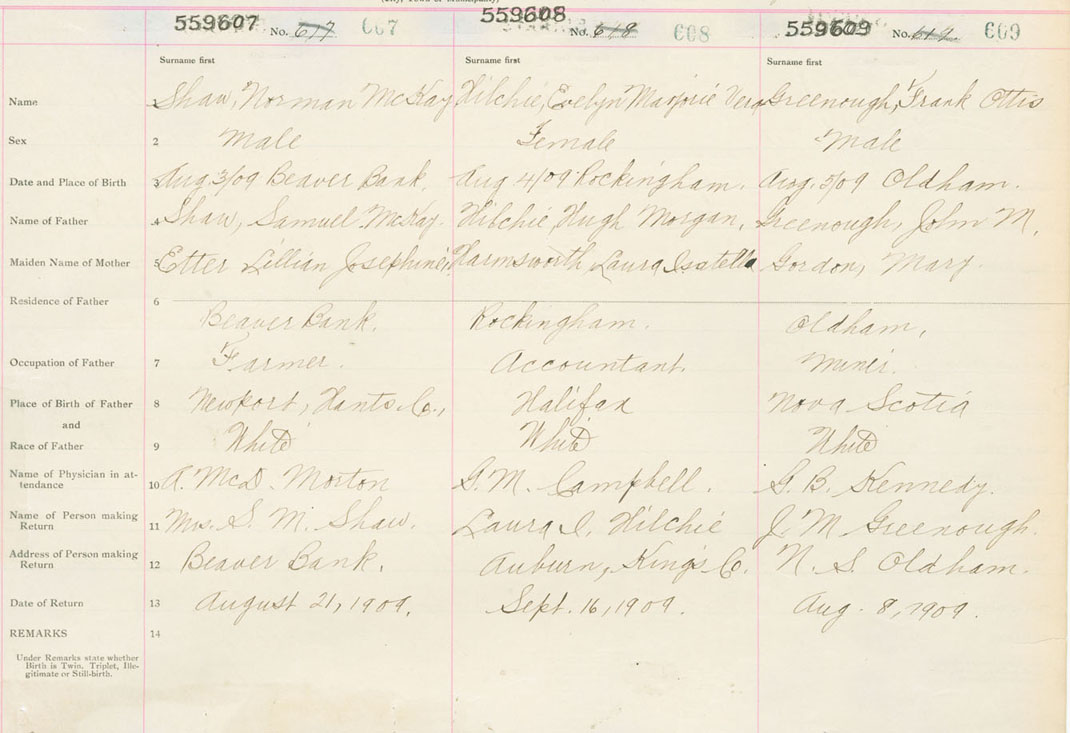 (City, Town or Municipality)
559607 No. 617 607 559608 No. 618 608 559609 No. 619 609
Surname first Surname first Surname first
Name 1 Shaw, Norman McKay Hilchie, Evelyn Marjorie Vera Greenough, Frank Ottis
Sex 2 Male Female Male
Date and Place of Birth 3 Aug. 3/09 Beaver Bank. Aug 4/09 Rockingham. Aug. 5/09 Oldham.
Name of Father 4 Shaw, Samuel McKay. Hilchie, Hugh Morgan. Greenough, John M.
Maiden Name of Mother 5 Etter Lillian Josephine, Harmsworth Laura Isabella Gordon, Mary.
Residence of Father 6
Beaver Bank. Rockingham. Oldham,
Occupation of Father 7 Farmer. Accountant. Miner.
Place of Birth of Father 8 Newport, Hants Co., Halifax Nova Scotia
and
Race of Father 9 White White White
Name of Physician in at-
tendance 10 A. McD. Morton G. M. Campbell. G. B. Kennedy.
Name of Person making
Return 11 Mrs. S. M. Shaw. Laura I. Hilchie J. M Greenough.
Address of Person making
Return 12 Beaver Bank. Auburn, Kings Co. N. S. Oldham.
Date of Return 13 August 21, 1909. Sept. 16, 1909. Aug. 8, 1909.
REMARKS 14
Under Remarks state whether
Birth is Twin. Triplet, Ille-
gitimate or Still-birth.